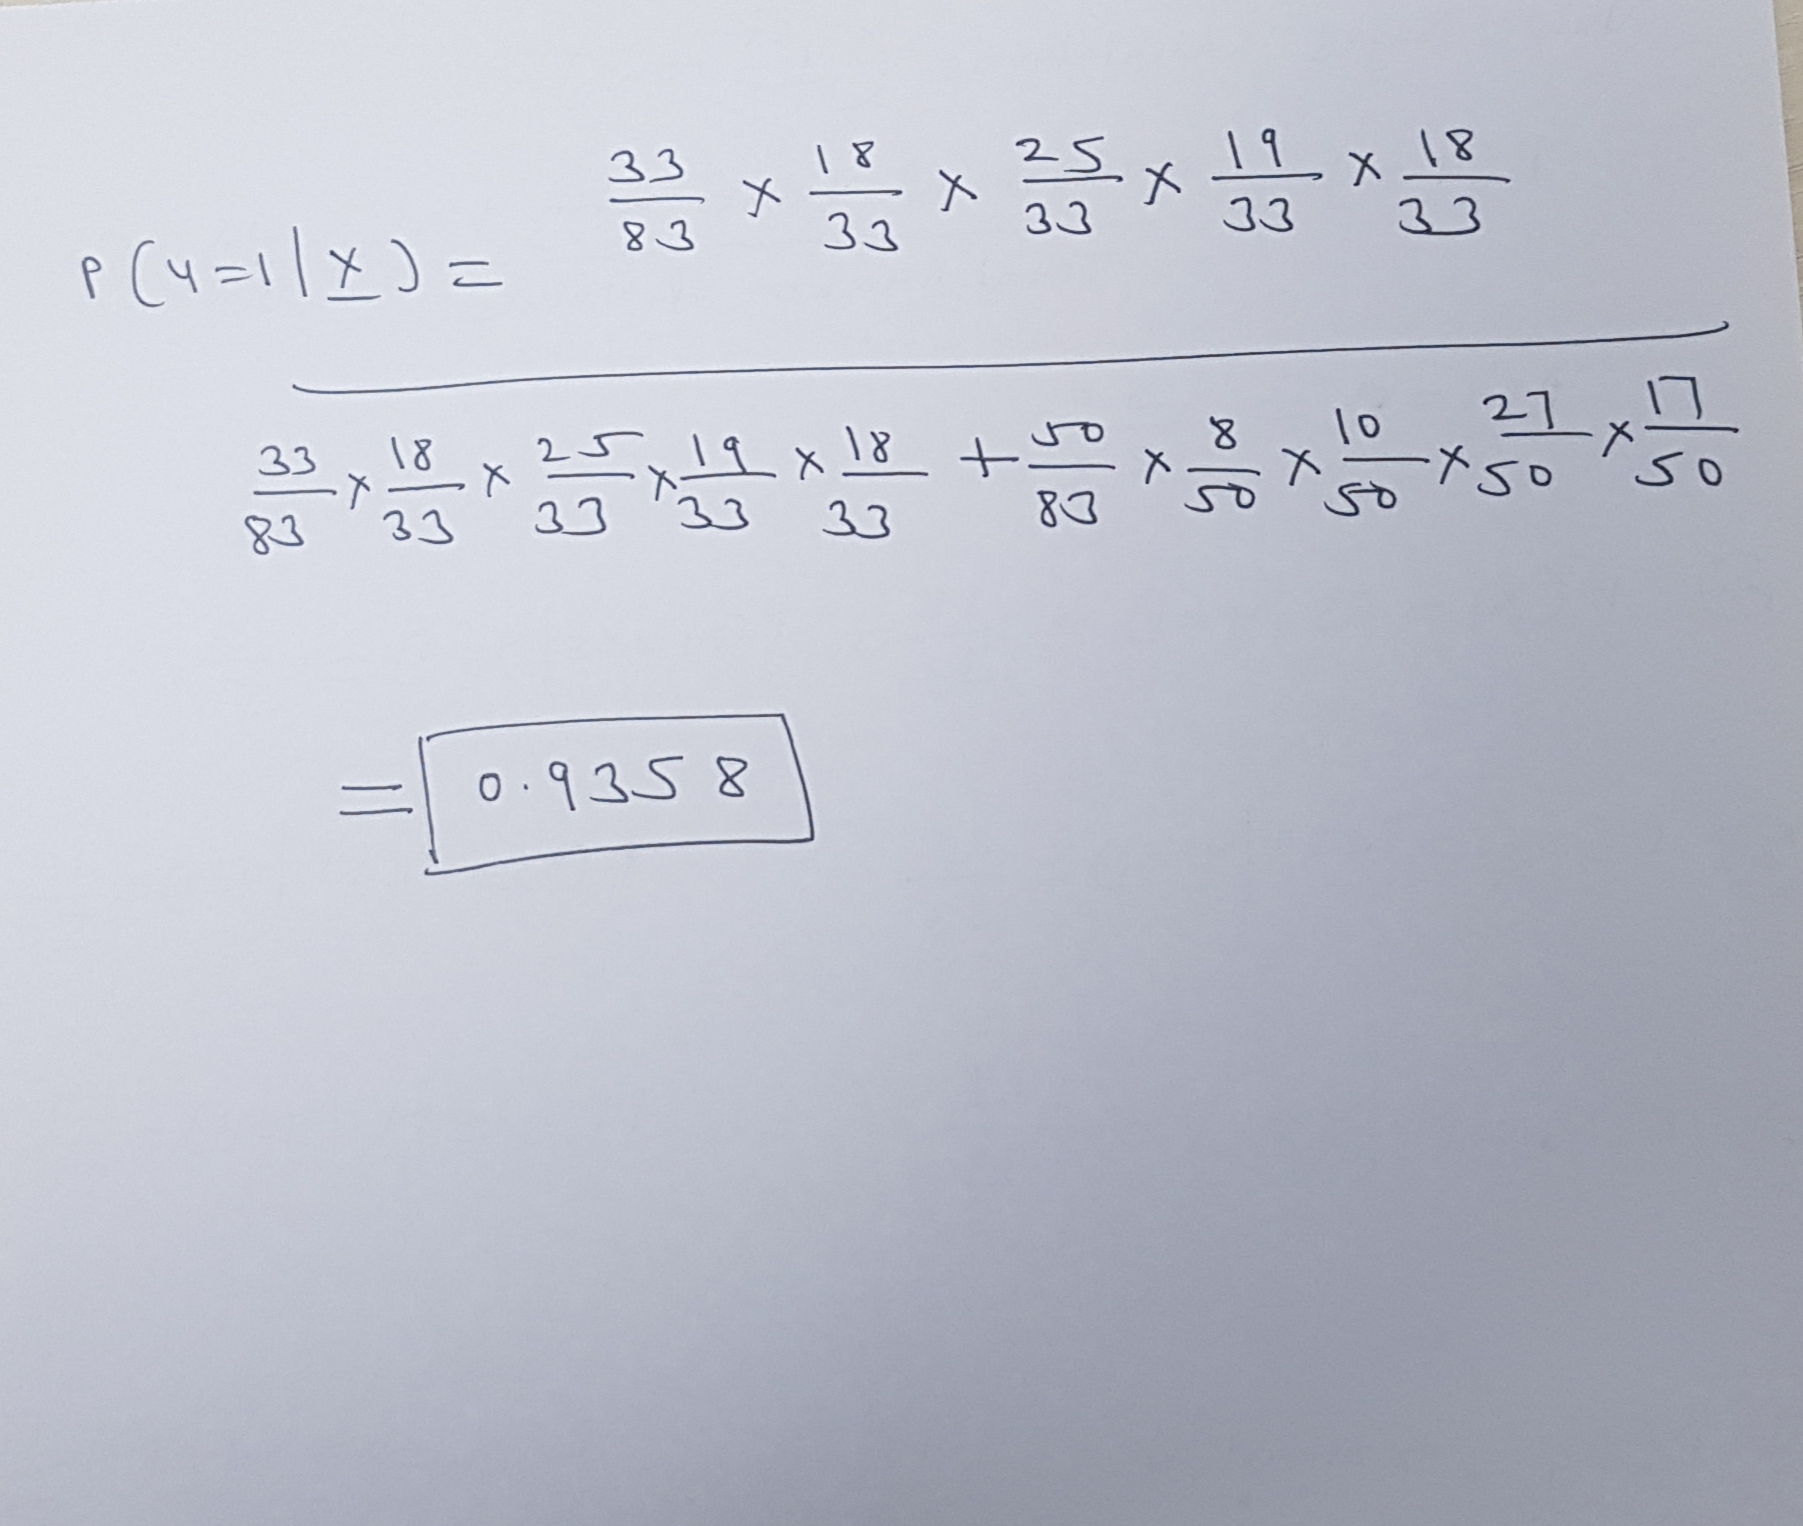 33/83 × 18/33 × 25/33 × 19/33 × 18/33
P(y=1|x) =
33/83 × 18/33 × 25/33 × 19/33 × 18/33 + 50/83 × 8/50 × 10/50 × 27/50 × 17/50
= 0.9358